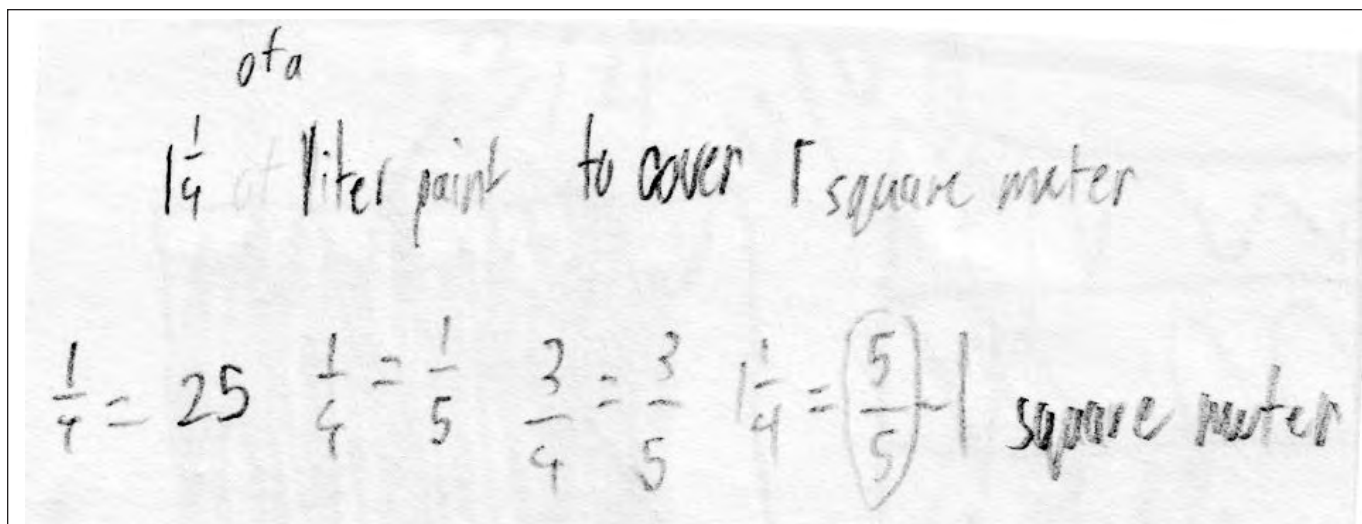 of a
1 1/4 of liter paint to cover 1 square meter
1/4 = 25 1/4 = 1/5 3/4 = 3/5 1 1/4 = 5/5 - 1 square meter